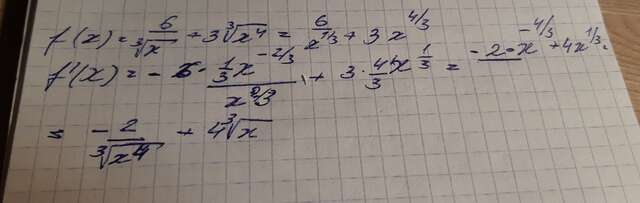 f(x) = 6/∛x + 3∛x⁴ = 6/x^1/3 + 3x^4/3
f'(x) = - 6 · 1/3 x^-2/3 / x^2/3 + 3 · 4/3 x^1/3 = -2 · x^-4/3 + 4x^1/3 =
= -2/∛x⁴ + 4∛x